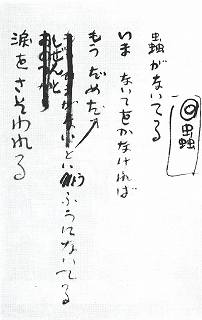 ◎蟲
蟲がないてる
いま ないておかなければ
もうだめだ
というふうにないてる
しぜんと
涙をさそわれる